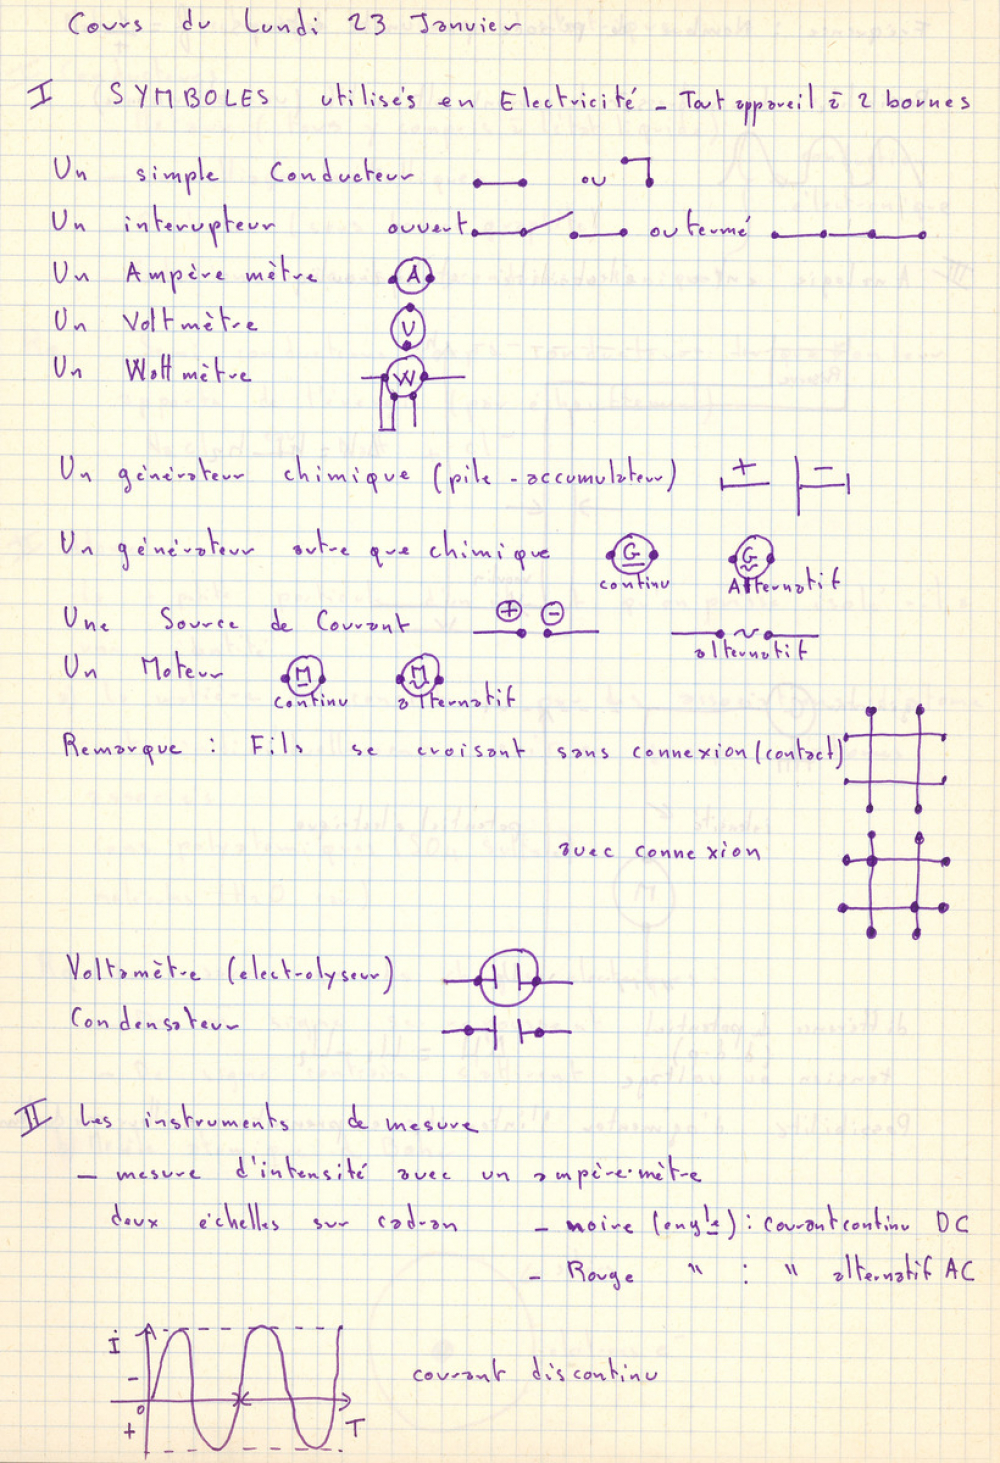 Cours du Lundi 23 Janvier
I SYMBOLES utilisés en Electricité - Tout appareil à 2 bornes
Un simple Conducteur ou
Un interupteur ouvert ou fermé
Un Ampère mètre A
Un Voltmètre V
Un Wattmètre W
Un générateur chimique (pile - accumulateur) + -
Un générateur autre que chimique G G
continu Alternatif
Une Source de Courant + - ~
alternatif
Un Moteur M M
continu alternatif
Remarque : Fils se croisant sans connexion (contact)
avec connexion
Voltamètre (electrolyseur)
Condensateur
II Les instruments de mesure
- mesure d'intensité avec un ampère-mètre
deux échelles sur cadran - noire (engls) : courant continu DC
- Rouge " : " alternatif AC
i
-
o
+ T
courant discontinu